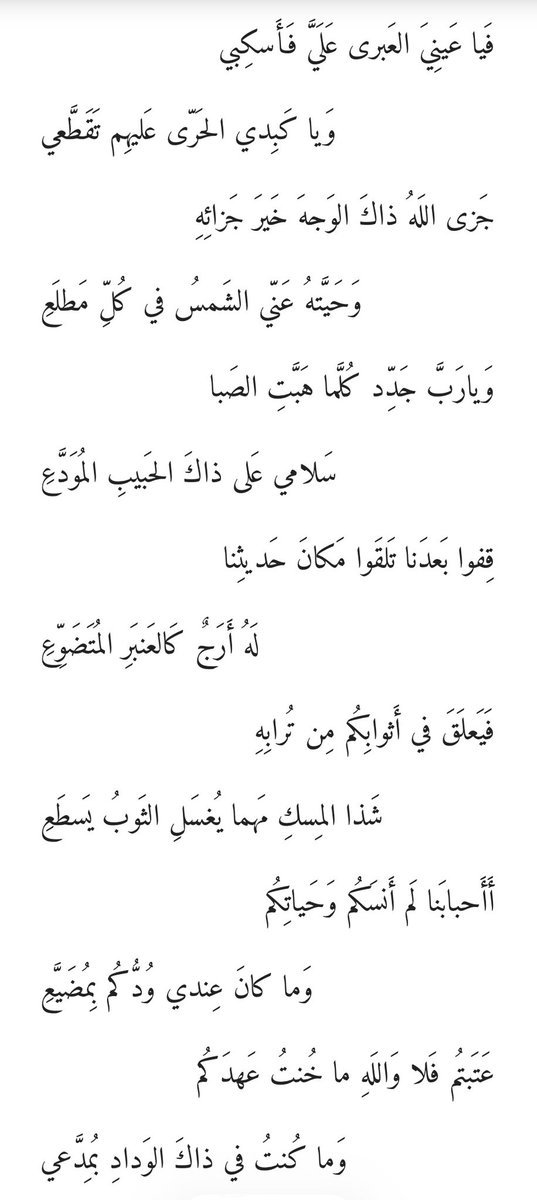 فَيا عَينِيَ العَبرى عَلَيَّ فَأَسكِبي
وَيا كَبِدي الحَرّى عَليهِم تَقَطَّعي
جَزى اللَهُ ذاكَ الوَجهَ خَيرَ جَزائِهِ
وَحَيَّتهُ عَنّي الشَمسُ في كُلِّ مَطلَعِ
وَيارَبَّ جَدِّد كُلَّما هَبَّتِ الصَبا
سَلامي عَلى ذاكَ الحَبيبِ المُوَدَّعِ
قِفوا بَعدَنا تَلقَوا مَكانَ حَديثِنا
لَهُ أَرَجٌ كَالعَنبَرِ المُتَضَوِّعِ
فَيَعلَقَ في أَثوابِكُم مِن تُرابِهِ
شَذا المِسكِ مَهما يُغسَلِ الثَوبُ يَسطَعِ
أَأَحبابَنا لَم أَنسَكُم وَحَياتِكُم
وَما كانَ عِندي وُدُّكُم بِمُضَيَّعِ
عَتَبتُم فَلا وَاللَهِ ما خُنتُ عَهدَكُم
وَما كُنتُ في ذاكَ الوَدادِ بِمُدَّعي